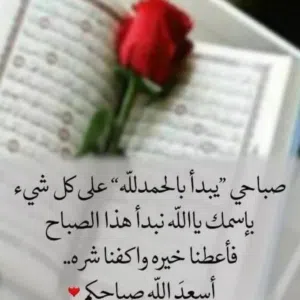 صباحي "يبدأ بالحمدلله" على كل شيء
بإسمك ياالله نبدأ هذا الصباح
فأعطنا خيره واكفنا شره..
أسعدَ الله صباحكم